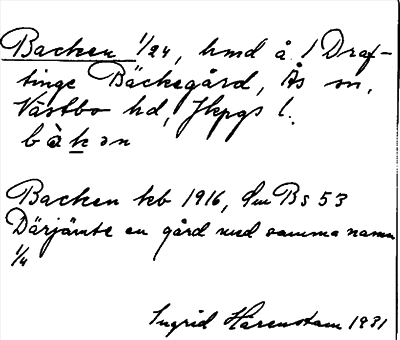 Backen 1/24, hmd å 1 Draf-
tinge Bäckegård, Ås sn,
Västbo hd, Jkpgs l.
bàkən
Backen kb 1916, dm Bs 53
Därjämte en gård med samma namn
1/4
Ingrid Harenstam 1931